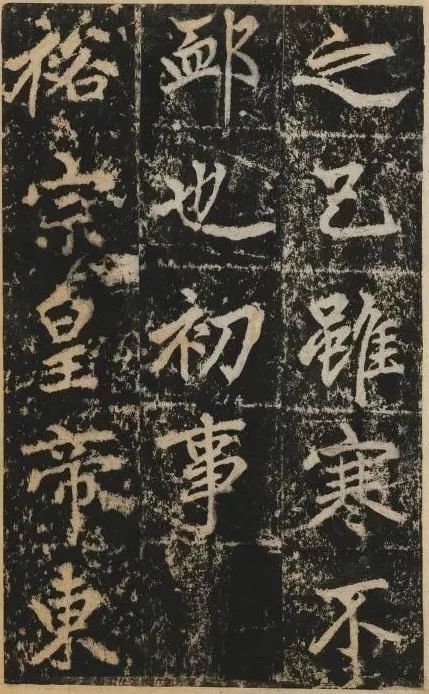 之己雖寒不
䘏也初事
裕宗皇帝東